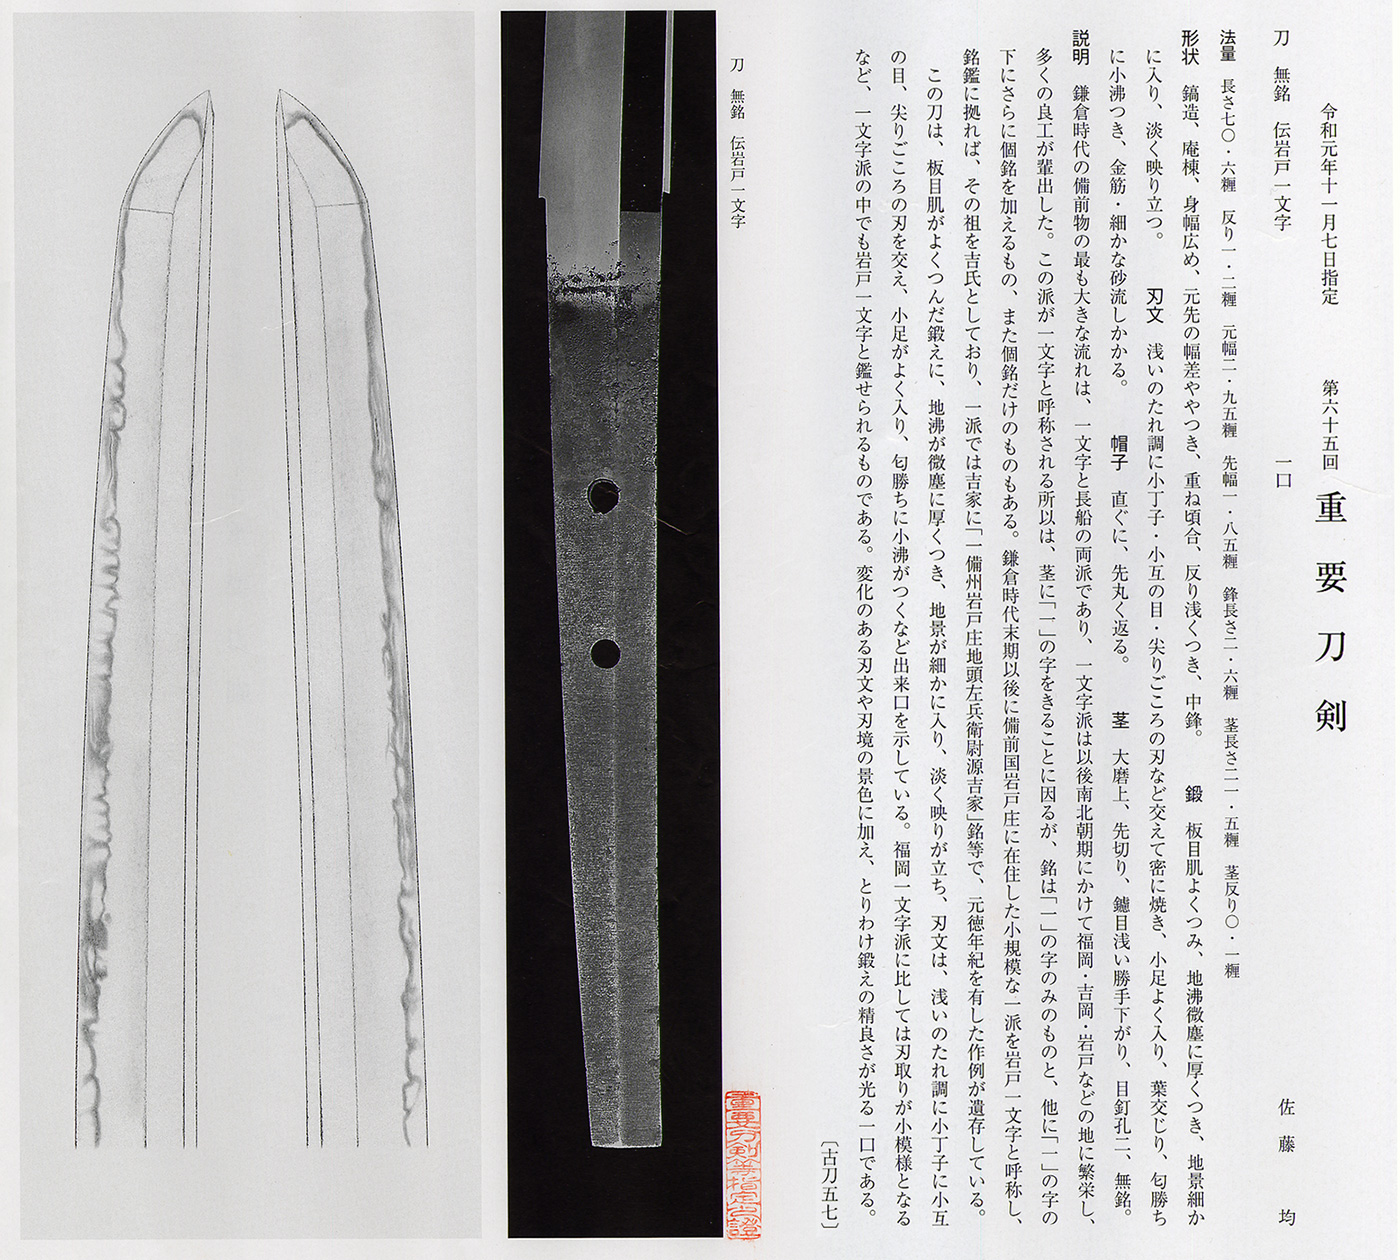 令和元年十一月七日指定　第六十五回　重要刀剣
刀　無銘　伝岩戸一文字　一口　佐藤　均
法量　長さ七〇・六糎　反り一・二糎　元幅二・九五糎　先幅一・八五糎　鋒長さ二・六糎　茎長さ二一・五糎　茎反り〇・一糎
形状　鎬造、庵棟、身幅広め、元先の幅差ややつき、重ね頃合、反り浅くつき、中鋒。　鍛　板目肌よくつみ、地沸微塵に厚くつき、地景細か
に入り、淡く映り立つ。　刃文　浅いのたれ調に小丁子・小互の目・尖りごころの刃など交えて密に焼き、小足よく入り、葉交じり、匂勝ち
に小沸つき、金筋・細かな砂流しかかる。　帽子　直ぐに、先丸く返る。　茎　大磨上、先切り、鑢目浅い勝手下がり、目釘孔二、無銘。
説明　鎌倉時代の備前物の最も大きな流れは、一文字と長船の両派であり、一文字派は以後南北朝期にかけて福岡・吉岡・岩戸などの地に繁栄し、
多くの良工が輩出した。この派が一文字と呼称される所以は、茎に「一」の字をきることに因るが、銘は「一」の字のみのものと、他に「一」の字の
下にさらに個銘を加えるもの、また個銘だけのものもある。鎌倉時代末期以後に備前国岩戸庄に在住した小規模な一派を岩戸一文字と呼称し、
銘鑑に拠れば、その祖を吉氏としており、一派では吉家に「一備州岩戸庄地頭左兵衛尉源吉家」銘等で、元徳年紀を有した作例が遺存している。
この刀は、板目肌がよくつんだ鍛えに、地沸が微塵に厚くつき、地景が細かに入り、淡く映りが立ち、刃文は、浅いのたれ調に小丁子に小互
の目、尖りごころの刃を交え、小足がよく入り、匂勝ちに小沸がつくなど出来口を示している。福岡一文字派に比しては刃取りが小模様となる
など、一文字派の中でも岩戸一文字と鑑せられるものである。変化のある刃文や刃境の景色に加え、とりわけ鍛えの精良さが光る一口である。
〔古刀五七〕
刀　無銘　伝岩戸一文字
重要刀剣等指定之證